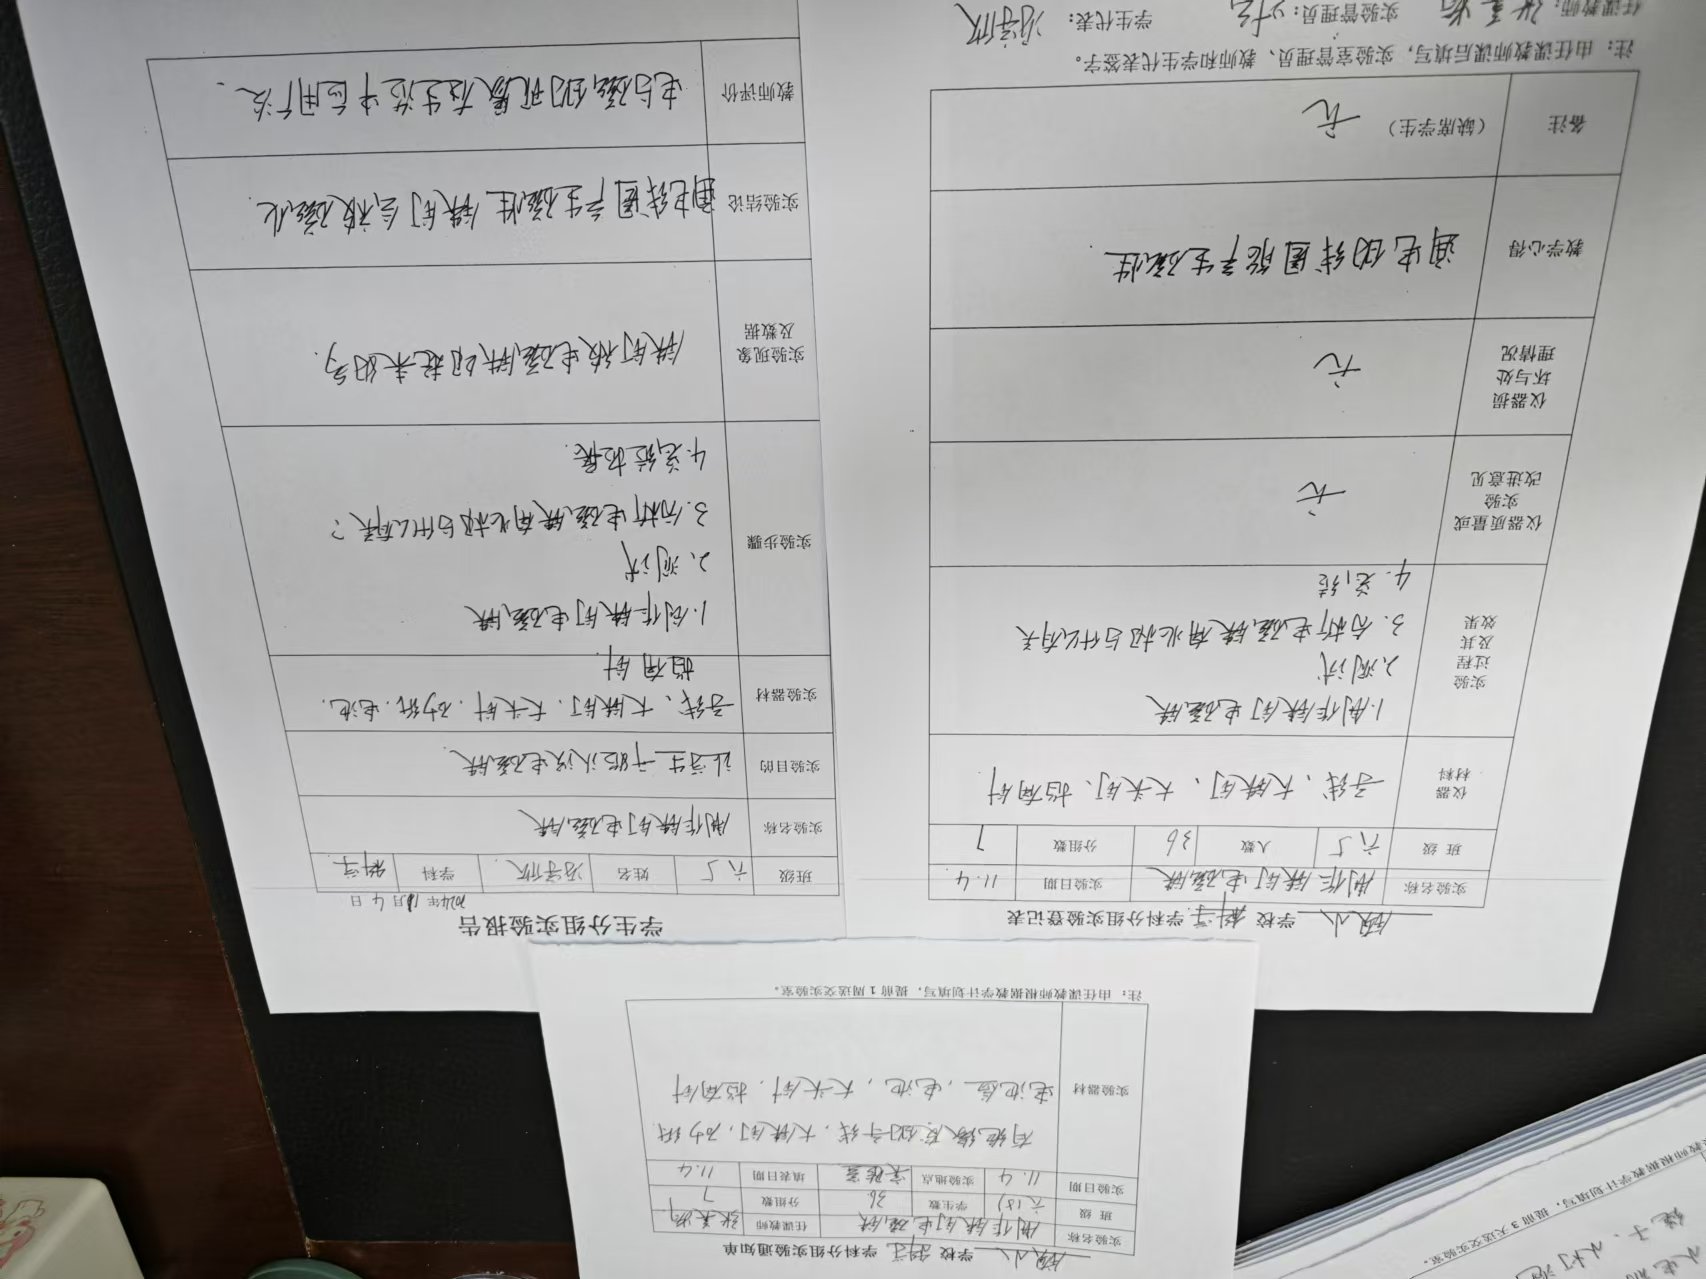 学生分组实验报告
2024年 11月 4 日
班级 六5 姓名 学科 科学
实验名称 制作铁钉电磁铁
实验目的 让学生了解认识电磁铁
实验器材 导线、大铁钉、大头针、砂纸、电池、
指南针
实验步骤 1.制作铁钉电磁铁
2.测试
3.分析电磁铁南北极与什么有关?
4.总结拓展
实验现象及数据 铁钉被电磁铁吸起来很多
实验结论 通电线圈产生磁性 铁钉会被磁化
教师评价 电与磁的现象在生活中应用广泛.
学校 科学 学科分组实验登记表
实验名称 制作铁钉电磁铁 实验日期 11.4
班级 六5 人数 36 分组数 7
仪器材料 导线、大铁钉、大头钉、指南针
实验过程及其效果 1.制作铁钉电磁铁
2.测试
3.分析电磁铁南北极与什么有关
4.总结
仪器质量或实验改进意见 无
仪器损坏与处理情况 无
教学心得 通电的线圈能产生磁性.
备注 (缺席学生) 无
注:由任课教师课后填写,实验室管理员、教师和学生代表签字。
任课教师: 实验管理员: 学生代表:
学校 科学 学科分组实验通知单
实验名称 制作铁钉电磁铁 任课教师
班级 六(5) 学生数 36 分组数 7
实验日期 11.4 实验地点 实验室 填表日期 11.4
实验器材 有绝缘皮的导线、大铁钉、砂纸
电池盒、电池、大头针、指南针
注:由任课教师根据教学计划填写,提前1周送交实验室。
教师根据教学计划填写,提前3天送交实验室。